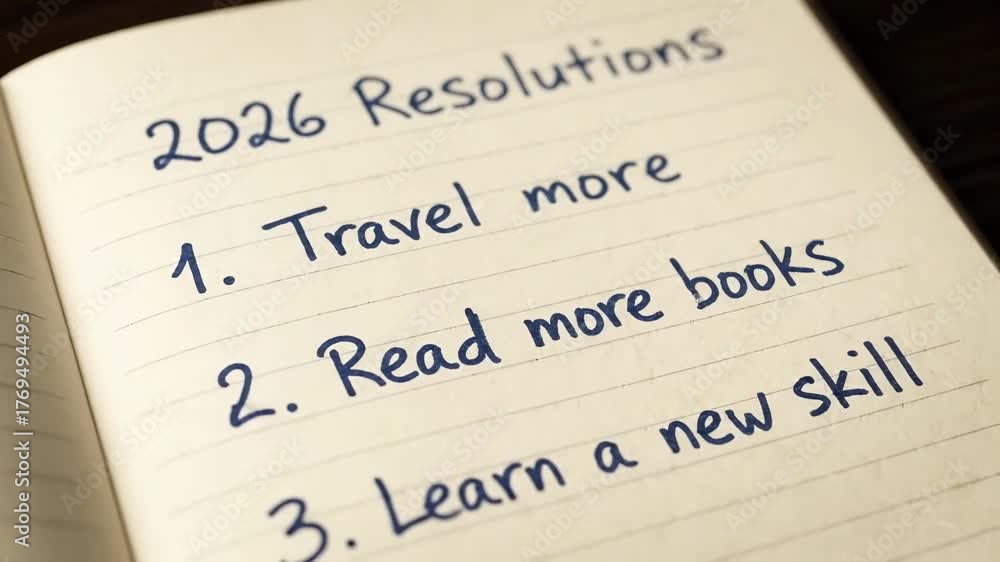 2026 Resolutions
1. Travel more
2. Read more books
3. Learn a new skill
Adobe Stock | #1769494493